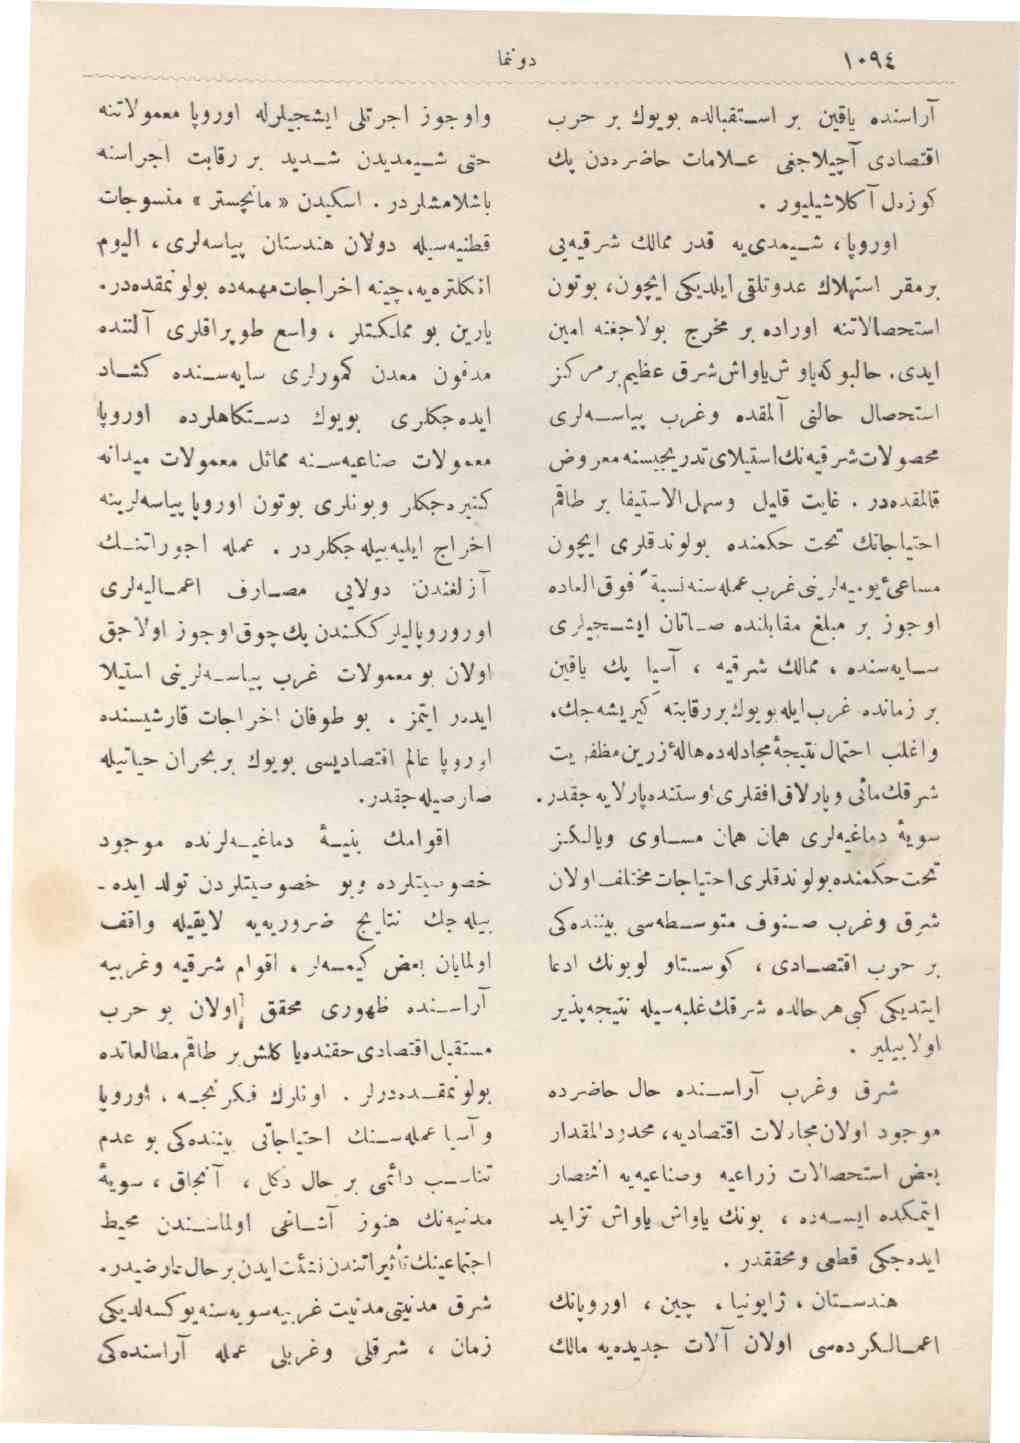 ١٠٩٤
دوننما
آراسنده ياقين بر استقبالده بويوك بر حرب
اقتصادى آچيلاجغى علامات حاضره‌دن پك
كوزدل آكلاشيليور .
اوروپا، شيمدى‌يه قدر ممالك شرقيه‌يى
برمقر استهلاك عدوتلقى ايلديكى ايچون، بوتون
استحصالاتنه اوراده بر مخرج بولاجغنه امين
ايدى. حالبوكه‌ياوش‌ياواش شرق عظيم برمركز
استحصال حالنى آلمقده وغرب پياسه‌لرى
محصولات شرقيه‌نك‌استيلاى تدريجيسنه معروض
قالمقده‌در . غايت قليل وسهل الاستيفا بر طاقم
احتياجاتك تحت حكمنده بولوندقلرى ايچون
مساعئ يوميه‌لرينى غرب عمله‌سنه نسبة فوق‌العاده
اوجوز بر مبلغ مقابلنده صاتان ايشجيلرى
سايه‌سنده ، ممالك شرقيه ، آسيا پك ياقين
بر زمانده غرب‌ايله بويوك بررقابته كيريشه‌جك،
واغلب احتمال نتيجۀ مجادله‌ده هالۀ زرين مظفريت
شرقك‌مائى وپارلاق‌افقلرى اوستنده‌پارلايه‌جقدر.
سويۀ دماغيه‌لرى همان همان مساوى ويالكز
تحت حكمنده بولوندقلرى احتياجات مختلف اولان
شرق وغرب صنوف متوسطه‌سى بيننده‌كى
بر حرب اقتصادى ، كوستاو لوبونك ادعا
ايتديكى كبى هرحالده شرقك غلبه‌سيله نتيجه‌پذير
اولابيلير .
شرق وغرب آراسنده حال حاضرده
موجود اولان مجادلات اقتصاديه، محدودالمقدار
بعض استحصالات زراعيه وصناعيه‌يه انحصار
ايتمكده ايسه‌ده ، بونك ياواش ياواش تزايد
ايده‌جكى قطعى ومحققدر .
هندستان ، ژاپونيا، چين ، اوروپانك
اعمالكرده‌سى اولان آلات جديده‌يه مالك
واوجوز اجرتلى ايشجيلرله اوروپا معمولاتنه
حتى شيمديدن شديد بر رقابت اجراسنه
باشلامشلردر . اسكيدن « مانچستر » منسوجات
قطنيه‌سيله دولان هندستان پياسه‌لرى ، اليوم
انكلتره‌يه، چينه اخراجات مهمه‌ده بولونمقده‌در.
يارين بو مملكتلر ، واسع طوپراقلرى آلتنده
مدفون معدن كمورلرى سايه‌سنده كشاد
ايده‌جكلرى بويوك دستكاهلرده اوروپا
معمولات صناعيه‌سنه مماثل معمولات ميدانه
كتيره‌جكلر وبونلرى بوتون اوروپا پياسه‌لرينه
اخراج ايليه‌بيله‌جكلردر . عمله اجوراتنك
آزلغندن دولايى مصارف اعماليه‌لرى
اوروروپاليلركنكندن پك چوق‌اوجوز اولاجق
اولان بو معمولات غرب پياسه‌لرينى استيلا
ايدر ايتمز . بو طوفان اخراجات قارشيسنده
اوروپا عالم اقتصاديسى بويوك بر بحران حياتيله
صارصيله‌جقدر.
اقوامك بنيۀ دماغيه‌لرنده موجود
خصوصيتلرده وبو خصوصيتلردن تولد ايده -
بيله‌جك نتايج ضروريه‌يه لايقيله واقف
اولمايان بعض كيمسه‌لر ، اقوام شرقيه وغربيه
آراسنده ظهورى محقق اولان بو حرب
مستقبل‌اقتصادى حقنده‌يا كلش بر طاقم مطالعاتده
بولونمقده‌درلر . اونلرك فكرنجه ، اوروپا
وآسيا عمله‌سنك احتياجاتى بيننده‌كى بو عدم
تناسب دائمى بر حال دكل ، آنجاق ، سويۀ
مدنيه‌نك هنوز آشاغى اولماسندن محيط
اجتماعينك تأثيراتندن نشئت‌ايدن برحال عارضيدر.
شرق مدنيتى مدنيت غربيه سويه‌سنه يوكسه‌لديكى
زمان ، شرقلى وغربلى عمله آراسنده‌كى